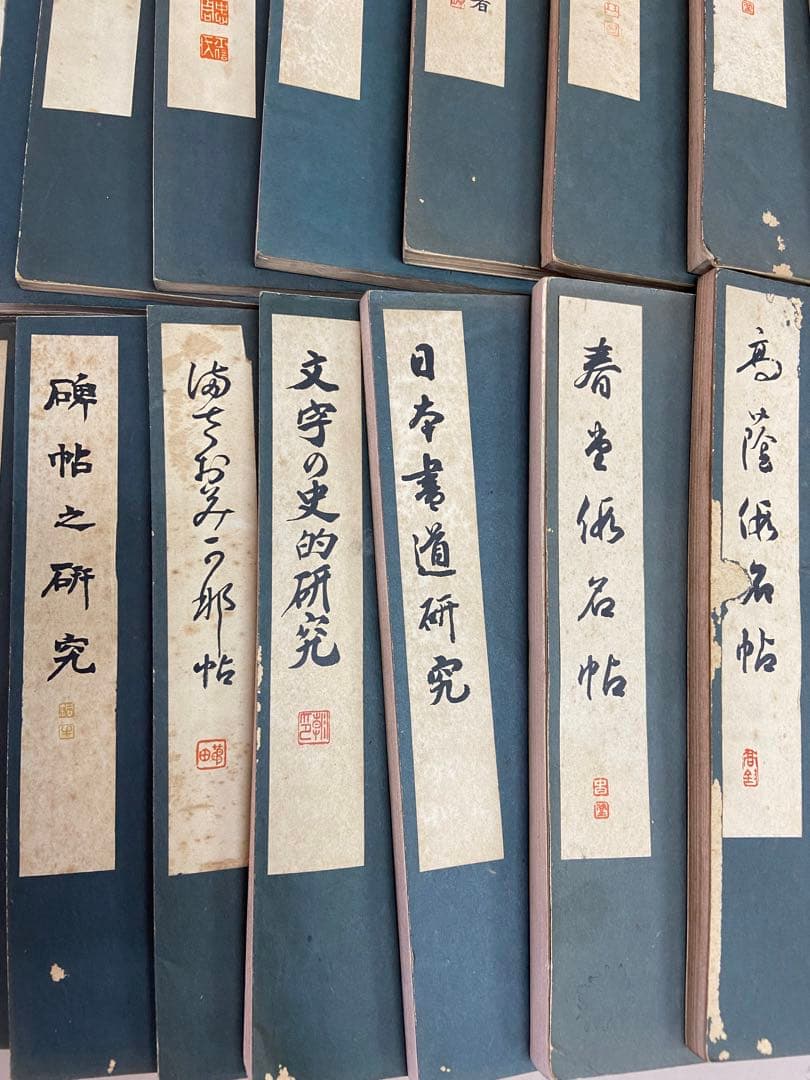 高蔭假名帖
春堂假名帖
日本書道研究
文字の史的研究
まさおみ可那帖
碑帖之研究